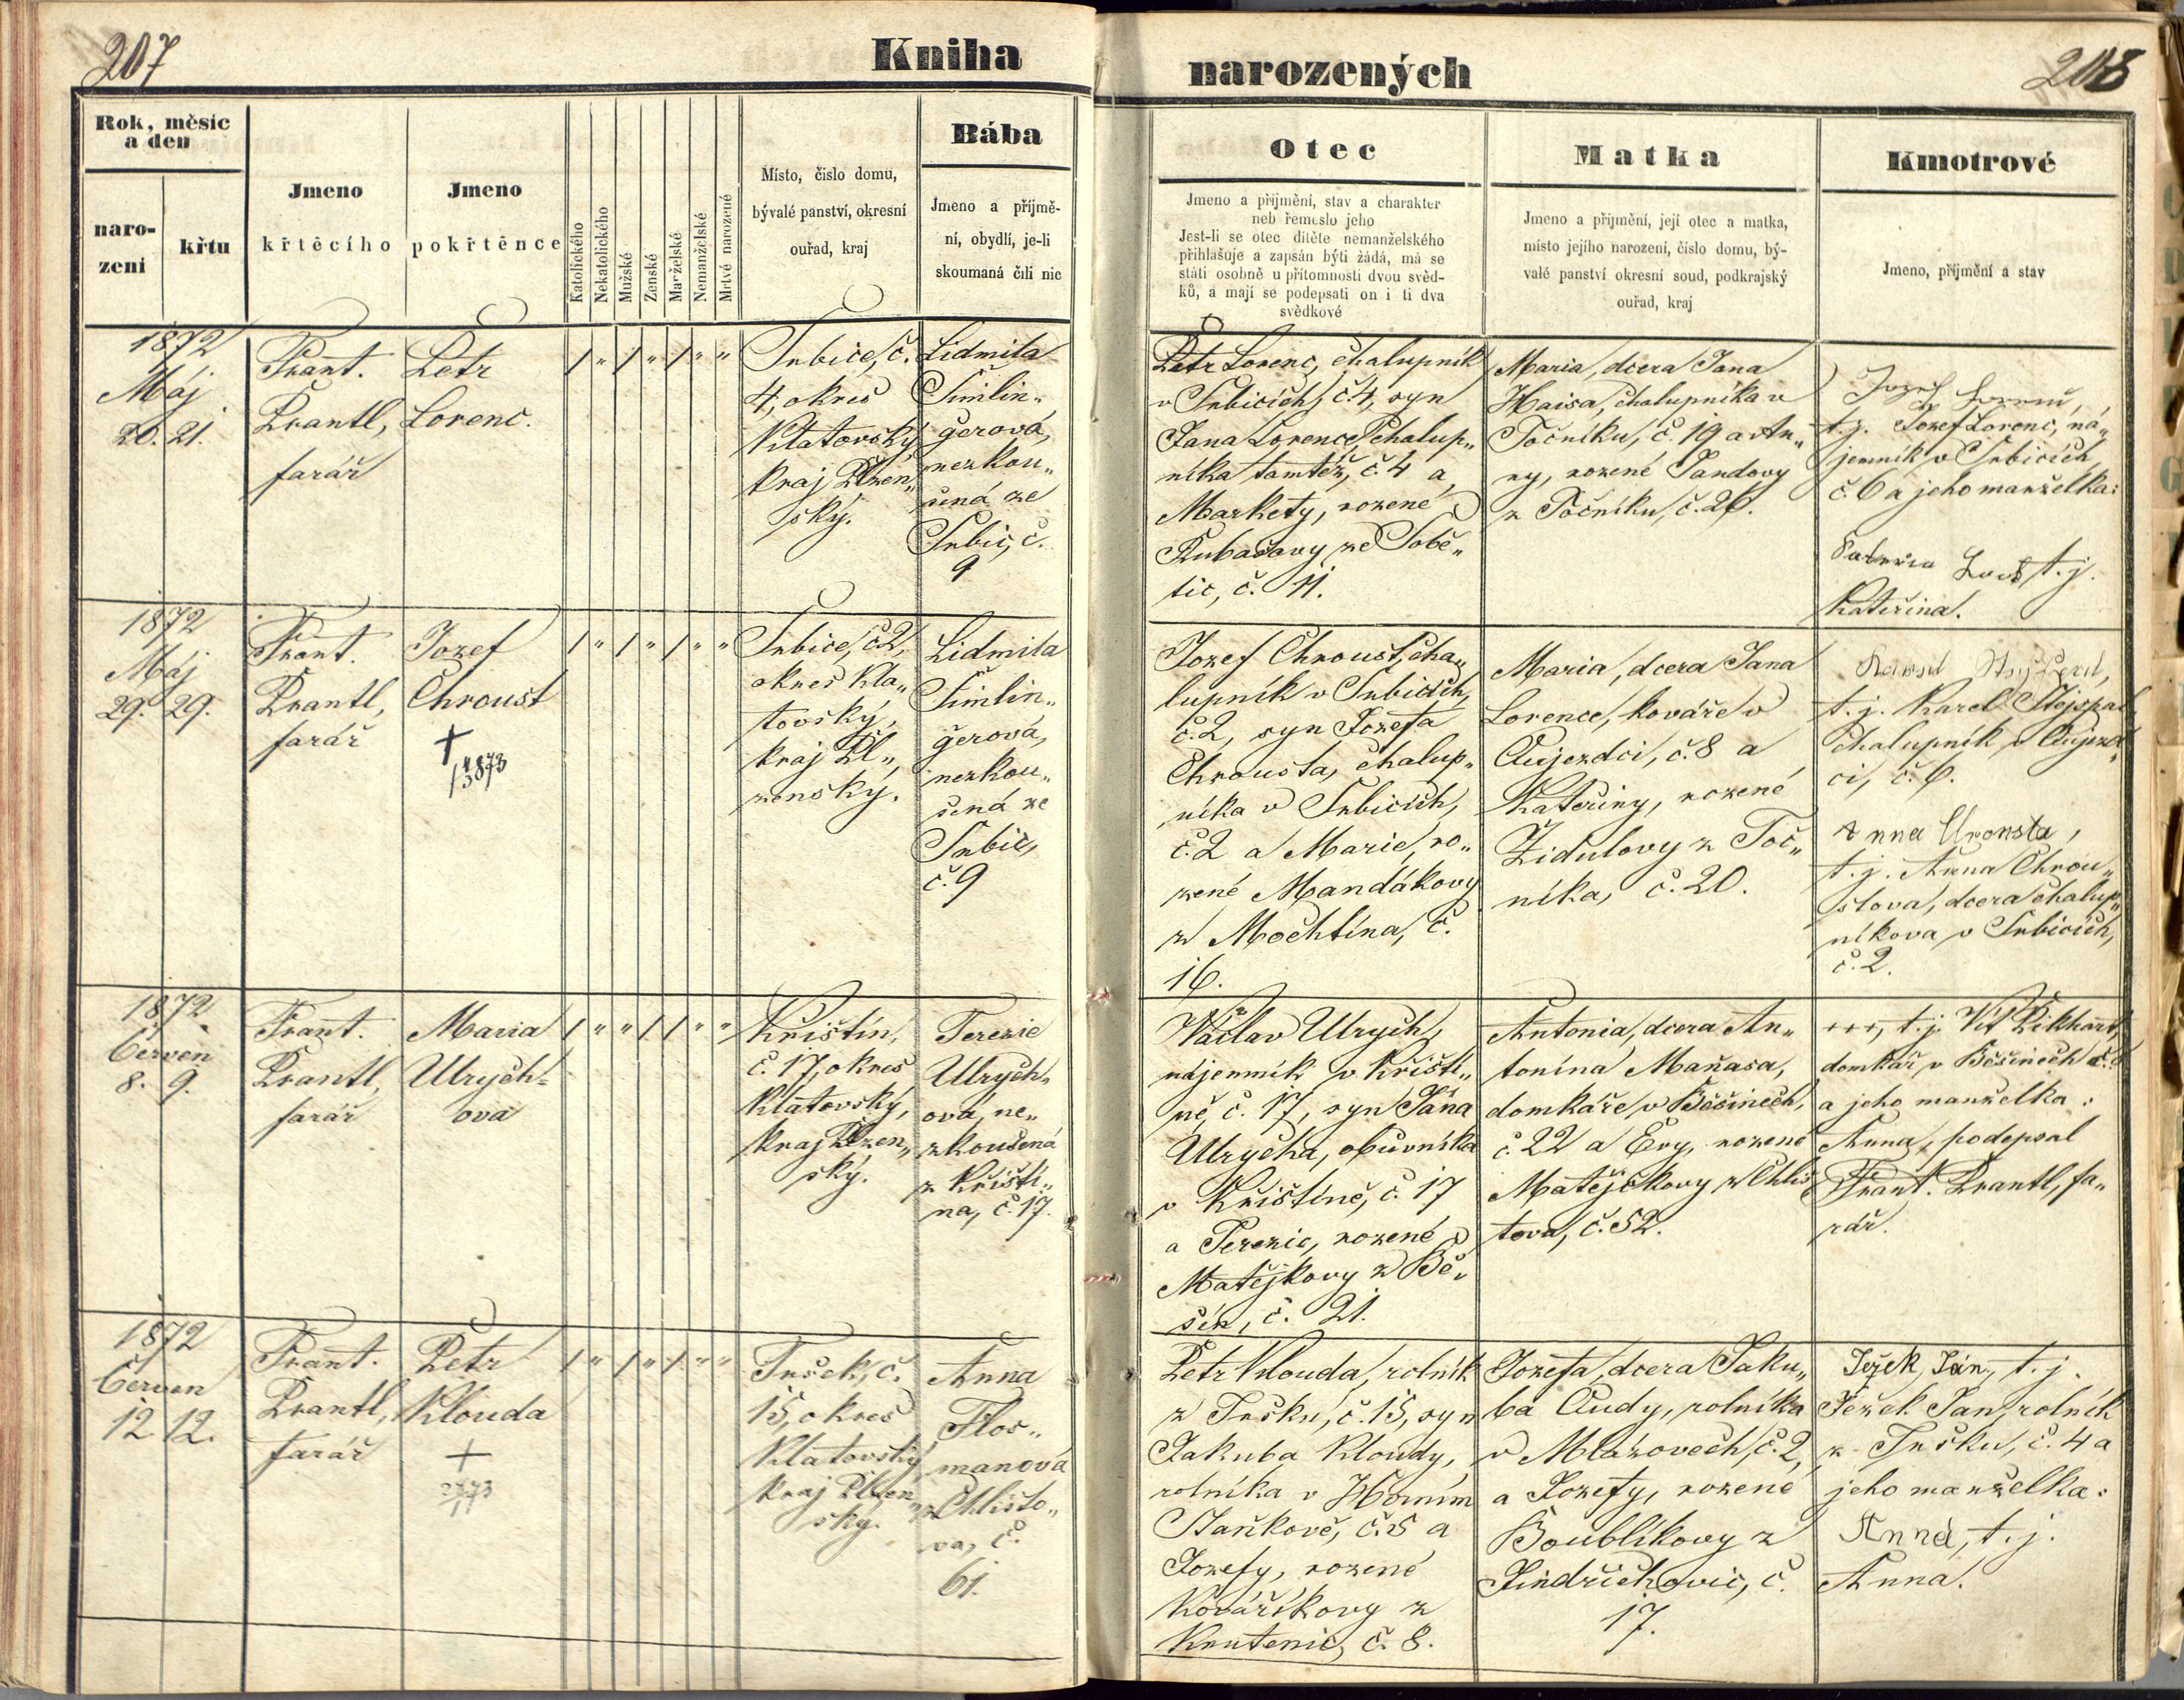 207
Kniha
narozených
208
Rok, měsíc
a den
naro-
zeni
křtu
Jmeno
křtěcího
Jmeno
pokřtěnce
Katolického
Nekatolického
Mužské
Zenské
Manželské
Nemanželské
Mrtvé narozené
Místo, čislo domu,
bývalé panství, okresní
ouřad, kraj
Bába
Jmeno a příjmě-
ní, obydlí, je-li
skoumaná čili nic
Otec
Jmeno a přijmění, stav a charakter
neb řemeslo jeho
Jest-li se otec ditěte nemanželského
přihlašuje a zapsán býti žádá, má se
státi osobně u přítomnosti dvou svěd-
ků, a mají se podepsati on i ti dva
svědkové
Matka
Jmeno a přijmění, její otec a matka,
místo jejího narození, číslo domu, bý-
valé panství okresní soud, podkrajský
ouřad, kraj
Kmotrové
Jmeno, příjmění a stav
1872
Máj
20. 21.
Frant.
Brantl,
farář
Petr
Lorenc.
/ " / " / " "
Srbice, č.
4, okres
Klatovský,
kraj Plzen„
ský.
Lidmila
Simlin„
gerová,
nezkou„
šená ze
Srbic, č.
9
Petr Lorenc, chalupník
v Srbicích, č. 4, syn
Jana Lorence, chalup„
níka tamtéž, č. 4 a
Markety, rozené
Kubašovy ze Sobě„
tic, č. 11.
Maria, dcera Jana
Haisa, chalupníka v
Točníku, č. 19 a An„
ny, rozené Jandovy
z Točníku, č. 26.
Jozef
t. j. Jozef Lorenc, ná„
jemník v Srbicích
č. 6 a jeho manželka:
t. j.
Kateřina.
1872
Máj
29. 29.
Frant.
Brantl,
farář
Jozef
Chroust
+
1873
/ " / " / " "
Srbice, č. 2,
okres Kla„
tovský,
kraj Pl„
zenský.
Lidmila
Simlin„
gerová,
nezkou„
šená ze
Srbic,
č. 9
Jozef Chroust, cha„
lupník v Srbicích,
č. 2, syn Jozefa
Chrousta, chalup„
níka v Srbicích,
č. 2 a Marie, ro„
zené Mandákovy
z Mochtína, č.
16.
Maria, dcera Jana
Lorence, kováře v
Aujezdci, č. 8 a
Kateřiny, rozené
Židulovy z Toč„
níka, č. 20.
t. j. Karel Stejskal,
chalupník v Aujezd„
ci, č. 6.
Anna
t. j. Anna Chrou„
stova, dcera chalup„
níkova v Srbicích,
č. 2.
1872
Červen
8. 9.
Frant.
Brantl,
farář
Maria
Ulrych-
ova
/ " " / / " "
Křištín,
č. 17, okres
Klatovský,
kraj Plzen„
ský.
Terezie
Ulrych„
ová, ne„
zkoušená
z Křiští„
na, č. 17.
Václav Ulrych,
nájemník v Křiští„
ně, č. 17, syn Jána
Ulrycha, obuvníka
v Křištíně, č. 17
a Terezie, rozené
Matějkovy z Bě„
šín, č. 21.
Antonia, dcera An„
tonína Maňasa,
domkáře v Běšinech,
č. 22 a Evy, rozené
Matějčkovy z Chlis„
tova, č. 52.
+++, t. j. Vít Pikhart,
domkář v Běšinech
a jeho manželka:
Anna, podepsal
Frant. Brantl, fa„
rář.
1872
Červen
12. 12.
Frant.
Brantl,
farář
Petr
Klouda
+
1873
/ " / " / " "
Tršek, č.
15, okres
Klatovský,
kraj Plzen„
ský.
Anna
Flos„
manová
z Chlisto„
va, č.
61.
Petr Klouda, rolník
z Tršku, č. 15, syn
Jakuba Kloudy,
rolníka v Horním
Staňkově, č. 5 a
Jozefy, rozené
Kováříkovy z
Krutenic, č. 8.
Jozefa, dcera Jaku„
ba Audy, rolníka
v Mlázovech, č. 2,
a Jozefy, rozené
Boublíkovy z
Jindřichovic, č.
17.
Ježek Ján, t. j.
Ježek Jan, rolník
z Tršku, č. 4 a
jeho manželka:
Anna, t. j.
Anna.